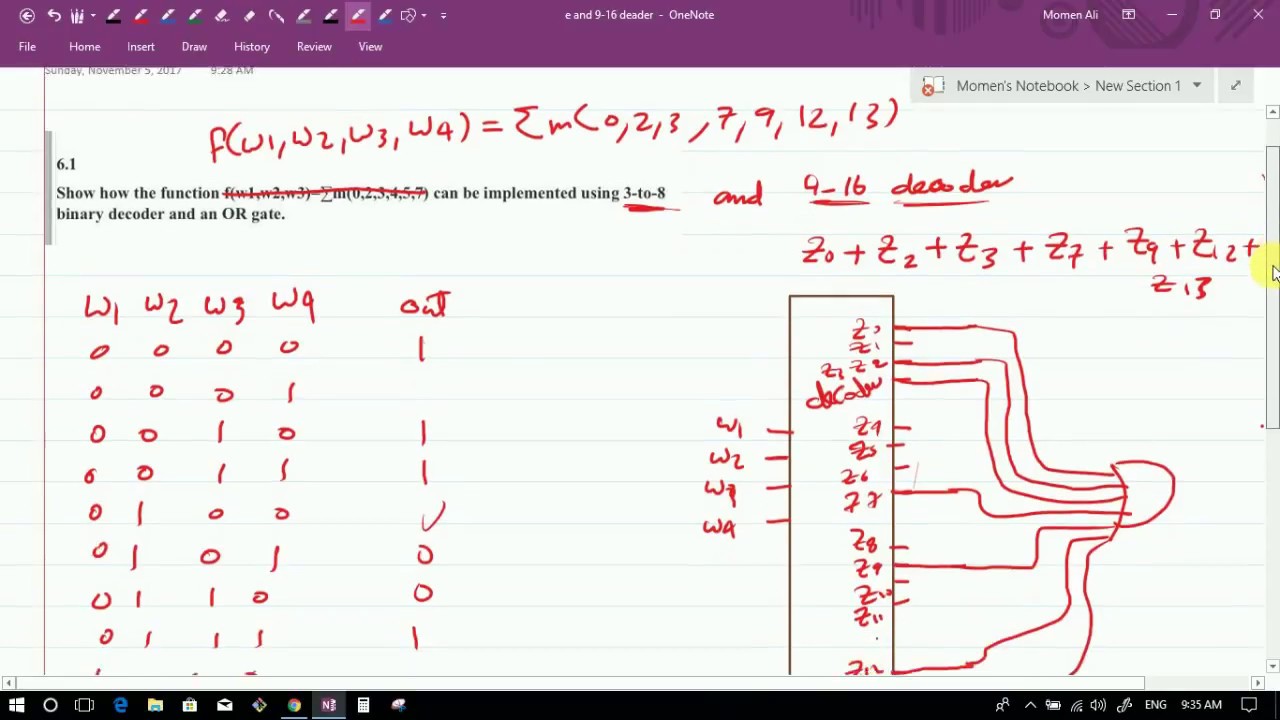 e and 9-16 deader - OneNote
Momen Ali
File Home Insert Draw History Review View
Sunday, November 5, 2017 9:28 AM
Momen's Notebook > New Section 1
f(w1,w2,w3,w4) = Σm(0,2,3,7,9,12,13)
6.1
Show how the function f(w1,w2,w3)=∑m(0,2,3,4,5,7) can be implemented using 3-to-8
binary decoder and an OR gate.
and 4-16 decoder
Z0 + Z2 + Z3 + Z7 + Z9 + Z12 +
Z13
W1 W2 W3 W4 out
0 0 0 0 1
0 0 0 1
0 0 1 0 1
0 0 1 1 1
0 1 0 0
0 1 0 1 0
0 1 1 0 0
0 1 1 1 1
Z0
Z1
Z3 Z2
decoder
Z4
Z5
Z6
Z7
Z8
Z9
Z10
Z11
Z12
W1
W2
W3
W4
ENG 9:35 AM